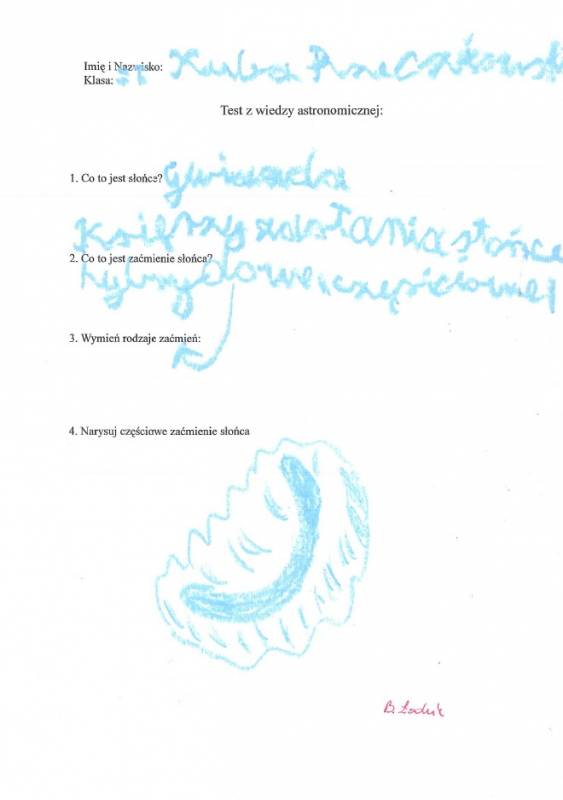 Imię i Nazwisko: Kuba Przeczkowsk
Klasa:
Test z wiedzy astronomicznej:
1. Co to jest słońce? Gwiazda
Księży zasłania słońce
2. Co to jest zaćmienie słońca?
hybrydowe, częściowe
3. Wymień rodzaje zaćmień:
4. Narysuj częściowe zaćmienie słońca